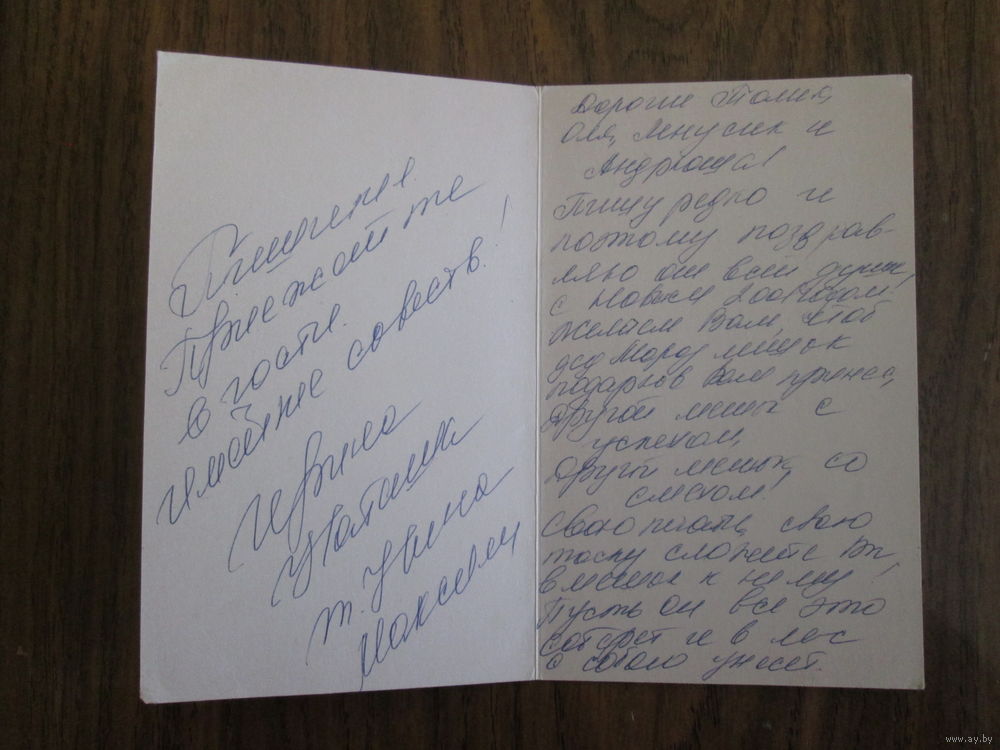 Пишите.
Приезжайте
в гости.
имейте совесть!
Ирина
т. Нина
Максим
Дорогие Толик,
Оля, Ленусик и
Андрюша!
Пишу редко и
поэтому поздрав-
ляю от всей души,
с Новым годом!
Желаем Вам, чтоб
дед Мороз мешок
подарков Вам принес,
другой мешок с
успехом,
Другой мешок, со
смехом.
Свою печаль, свою
тоску сложите Вы,
в мешок к нему!
Пусть он все это
соберет и в лес
с собою унесет.
www.ay.by